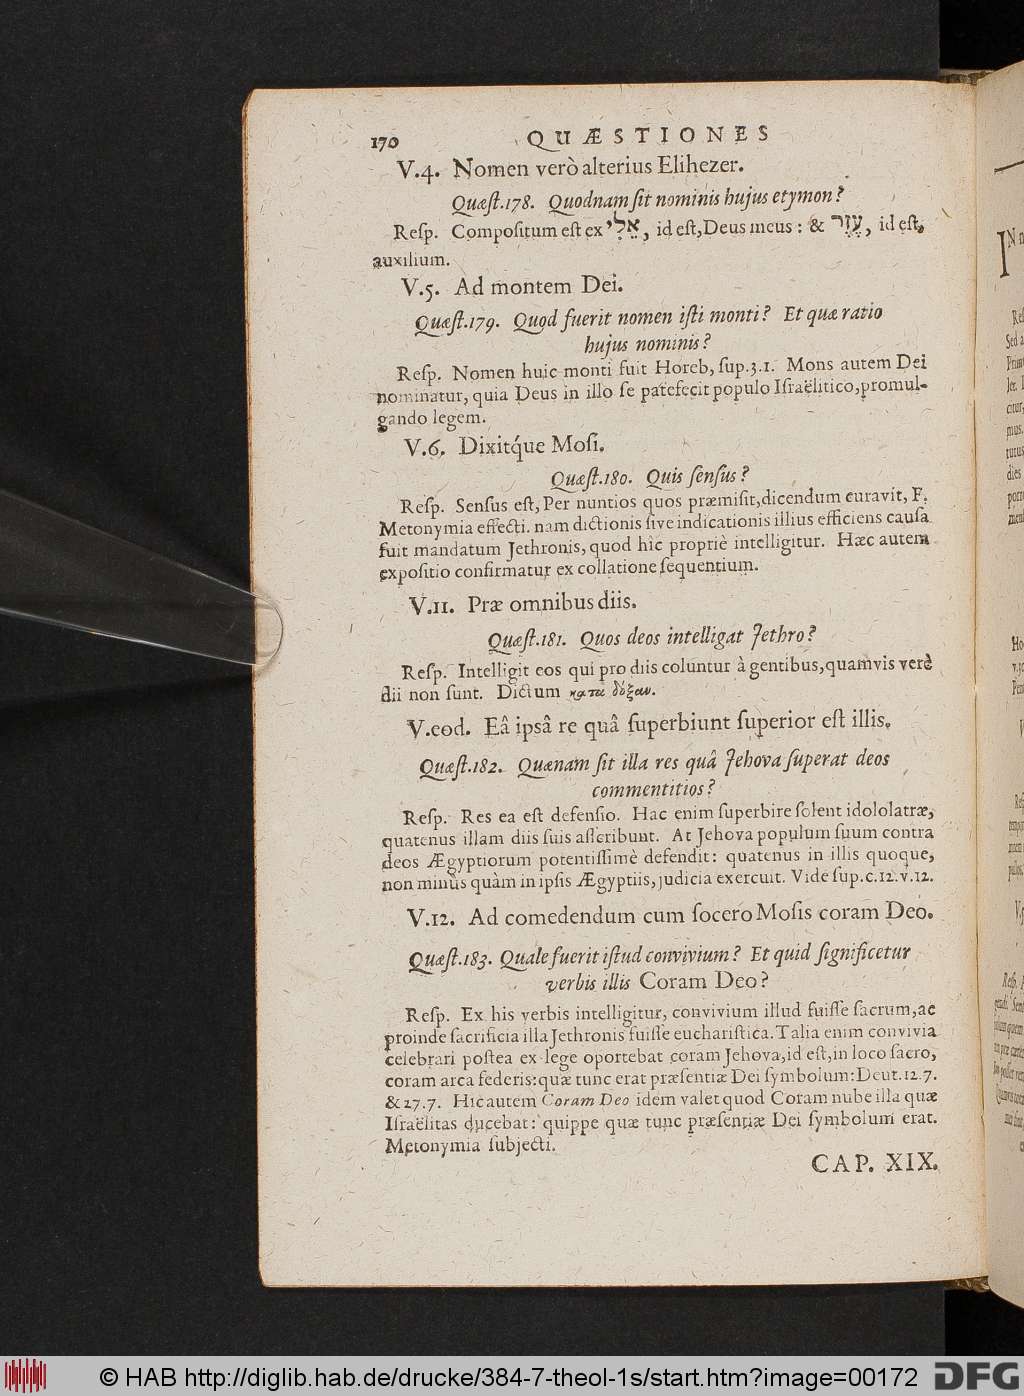 170 QUÆSTIONES
V.4. Nomen verò alterius Elihezer.
Quæſt.178. Quodnam ſit nominis hujus etymon?
Reſp. Compoſitum eſt ex אֵלִי, id eſt, Deus meus: & עֶזֶר, id eſt,
auxilium.
V.5. Ad montem Dei.
Quæſt.179. Quod fuerit nomen iſti monti? Et quæ ratio
hujus nominis?
Reſp. Nomen huic monti fuit Horeb, ſup.3.1. Mons autem Dei
nominatur, quia Deus in illo ſe patefecit populo Iſraëlitico, promul-
gando legem.
V.6. Dixitq́ue Moſi.
Quæſt.180. Quis ſenſus?
Reſp. Senſus eſt, Per nuntios quos præmiſit, dicendum curavit, F.
Metonymia effecti. nam dictionis ſive indicationis illius efficiens cauſa
fuit mandatum Jethronis, quod hîc propriè intelligitur. Hæc autem
expoſitio confirmatur ex collatione ſequentium.
V.11. Præ omnibus diis.
Quæſt.181. Quos deos intelligat Jethro?
Reſp. Intelligit eos qui pro diis coluntur à gentibus, quamvis verè
dii non ſunt. Dictum κατα δόξαν.
V.eod. Eâ ipsâ re quâ ſuperbiunt ſuperior eſt illis.
Quæſt.182. Quænam ſit illa res quâ Jehova ſuperat deos
commentitios?
Reſp. Res ea eſt defenſio. Hac enim ſuperbire ſolent idololatræ,
quatenus illam diis ſuis aſſcribunt. At Jehova populum ſuum contra
deos Ægyptiorum potentiſſimè defendit: quatenus in illis quoque,
non minùs quàm in ipſis Ægyptiis, judicia exercuit. Vide ſup.c.12.v.12.
V.12. Ad comedendum cum ſocero Moſis coram Deo.
Quæſt.183. Quale fuerit iſtud convivium? Et quid ſignificetur
verbis illis Coram Deo?
Reſp. Ex his verbis intelligitur, convivium illud fuiſſe ſacrum, ac
proinde ſacrificia illa Jethronis fuiſſe euchariſtica. Talia enim convivia
celebrari poſtea ex lege oportebat coram Jehova, id eſt, in loco ſacro,
coram arca fęderis: quæ tunc erat præſentiæ Dei ſymbolum: Deut.12.7.
& 27.7. Hic autem Coram Deo idem valet quod Coram nube illa quæ
Iſraëlitas ducebat: quippe quæ tunc præſentiæ Dei ſymbolum erat.
Metonymia ſubjecti.
CAP. XIX.
© HAB http://diglib.hab.de/drucke/384-7-theol-1s/start.htm?image=00172
DFG